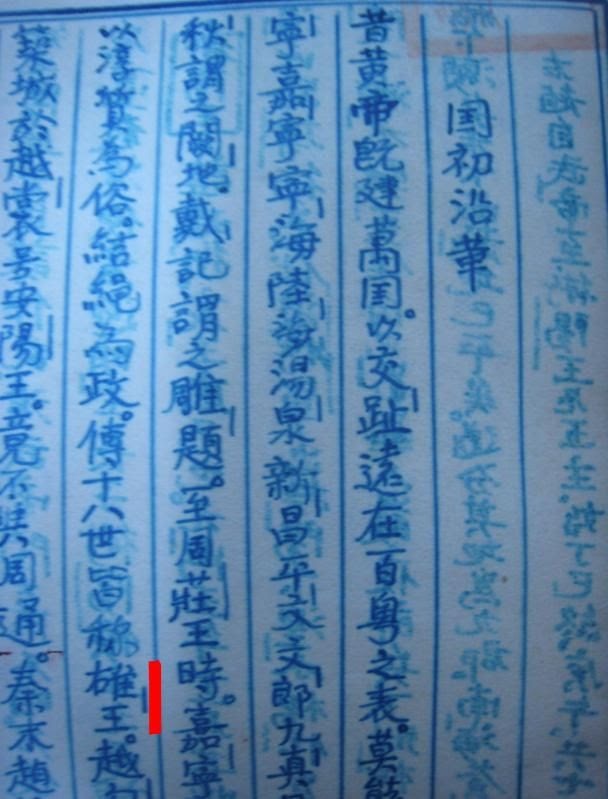 国初沿革
昔黄帝既建萬国。以交趾遠在百粤之表。莫能
寧嘉寧寧海陸海湯泉新昌平文文郎九真
秋謂之闕地。戴記謂之雕題。至周莊王時。嘉寧
以淳質為俗。結繩為政。傳十八世皆称雄王。越
築城於越裳号安陽王。竟不與周通。秦末趙